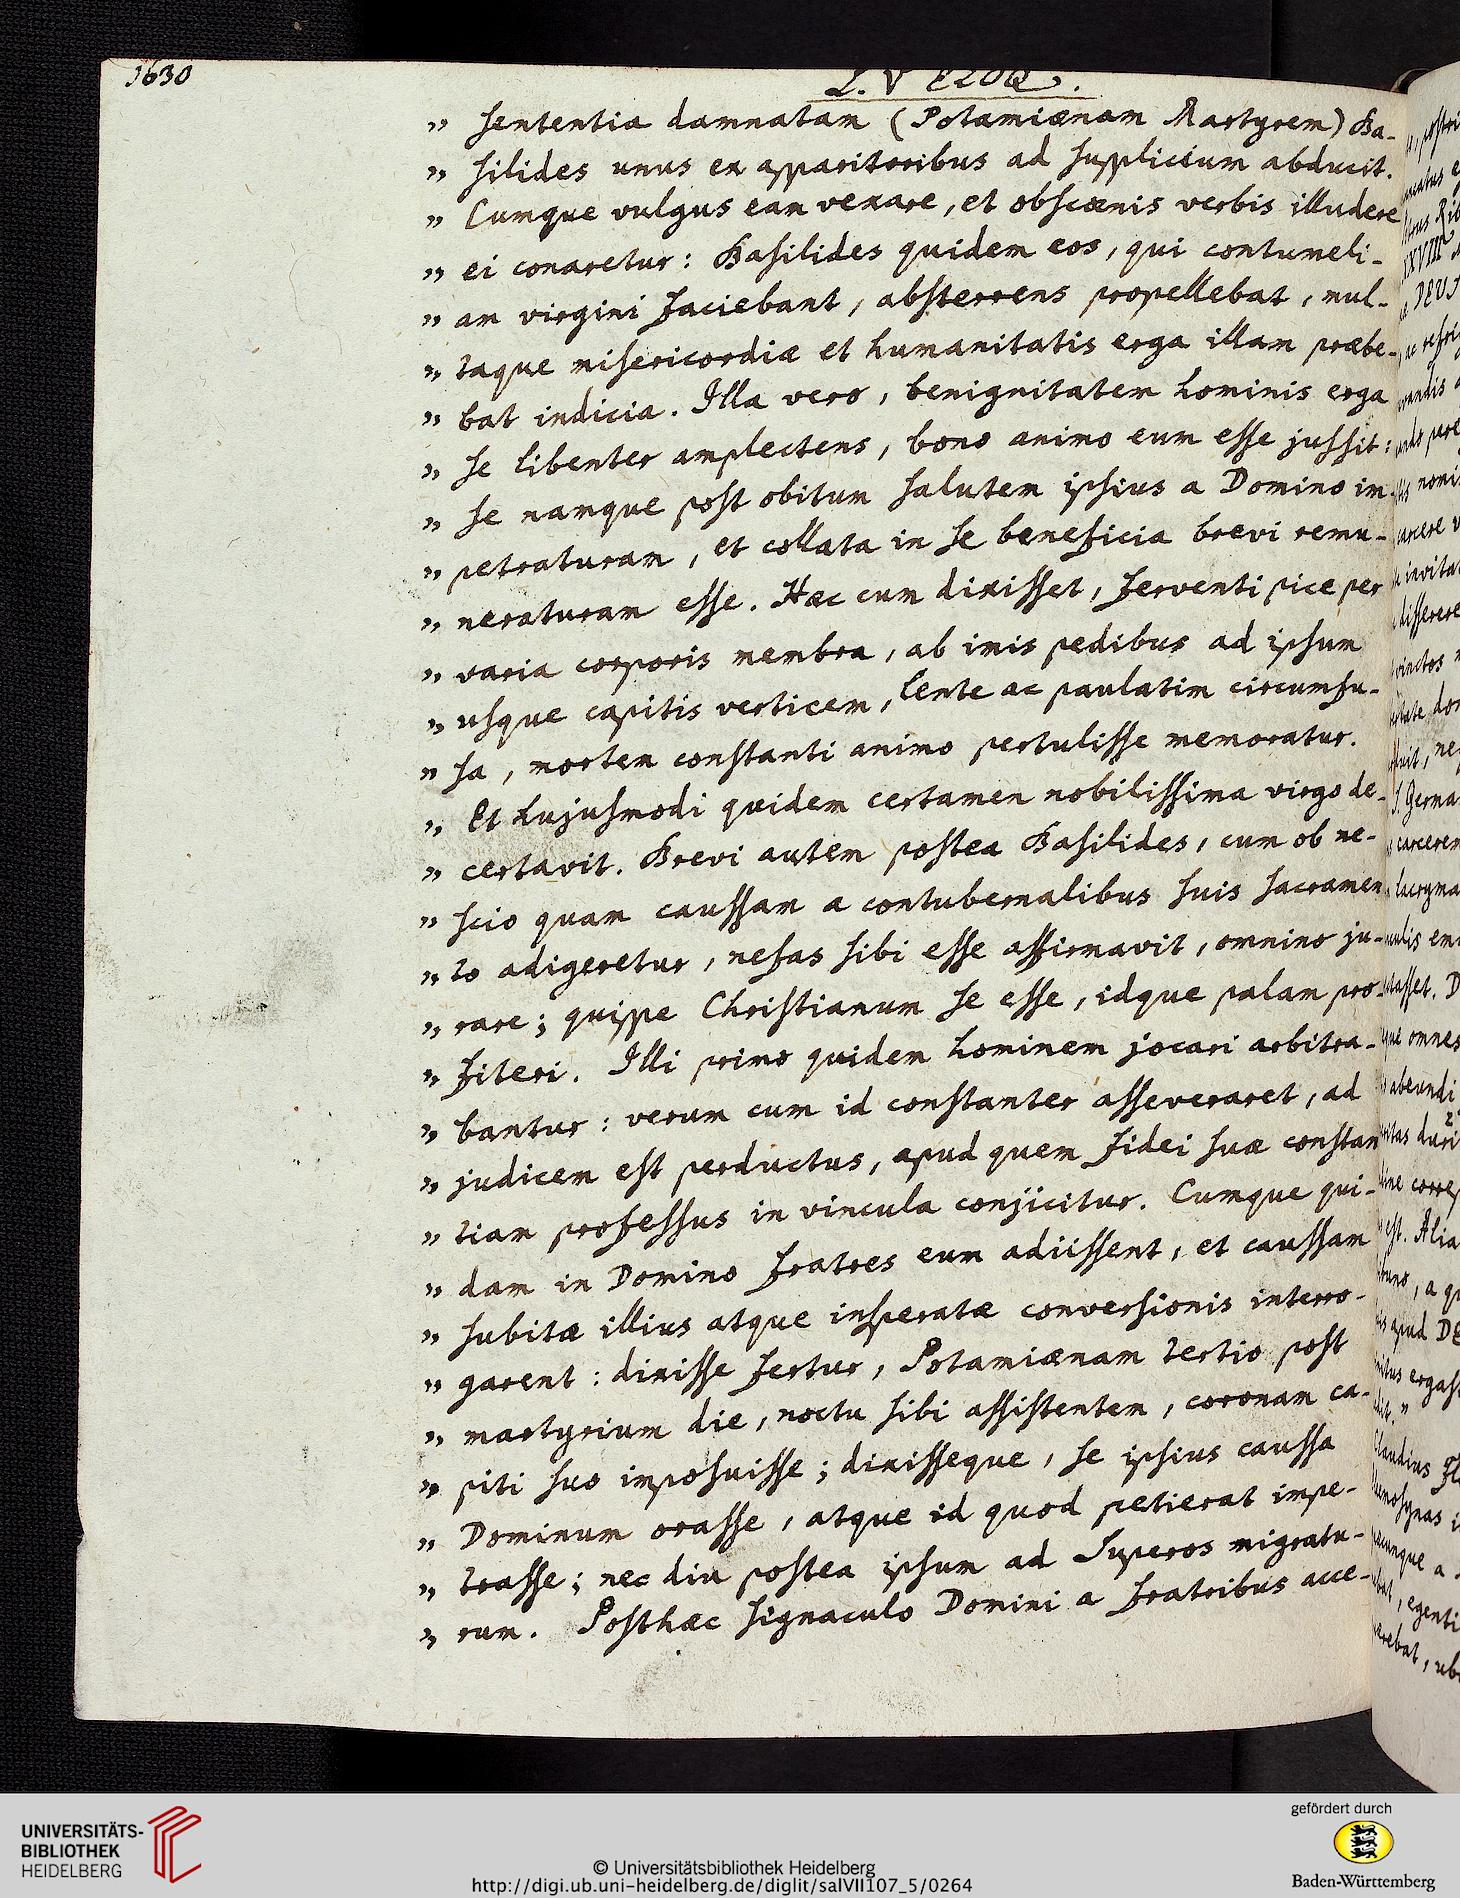 1630
L. V
„ sententia damnatam (Potamiænam Martyrem) Ba-
„ silides unus ex apparitoribus ad supplicium abducit.
„ Cumque vulgus eam vexare, et obscœnis verbis illudere
„ ei conaretur: Basilides quidem eos, qui contumeli-
„ am virgini faciebant, absterrens propellebat, mul-
„ taque misericordiæ et humanitatis erga illam præbe-
„ bat indicia. Illa vero, benignitatem hominis erga
„ se libenter amplectens, bono animo eum esse jussit:
„ se namque post obitum salutem ipsius a Domino im-
„ petraturam, et collata in se beneficia brevi remu-
„ neraturam esse. Hæc cum dixisset, ferventi pice per
„ varia corporis membra, ab imis pedibus ad ipsum
„ usque capitis verticem, lente ac paulatim circumfu-
„ sa, mortem constanti animo pertulisse memoratur.
„ Et hujusmodi quidem certamen nobilissima virgo de-
„ certavit. Brevi autem postea Basilides, cum ob ne-
„ scio quam caussam a contubernalibus suis sacramen
„ to adigeretur, nefas sibi esse affirmavit, omnino ju-
„ rare; quippe Christianum se esse, idque palam pro-
„ fiteri. Illi primo quidem hominem jocari arbitra-
„ bantur: verum cum id constanter asseveraret, ad
„ judicem est perductus, apud quem fidei suæ constan
„ tiam professus in vincula conjicitur. Cumque qui-
„ dam in Domino fratres eum adiissent, et caussam
„ subitæ illius atque insperatæ conversionis interro-
„ garent: dixisse fertur, Potamiænam tertio post
„ martyrium die, noctu sibi assistentem, coronam ca-
„ piti suo imposuisse; dixisseque, se ipsius caussa
„ Dominum orasse, atque id quod petierat impe-
„ trasse; nec diu postea ipsum ad Superos migratu-
„ rum. Posthæc signaculo Domini a fratribus acce-
UNIVERSITÄTS-
BIBLIOTHEK
HEIDELBERG
© Universitätsbibliothek Heidelberg
http://digi.ub.uni-heidelberg.de/diglit/salVII107_5/0264
gefördert durch
Baden-Württemberg